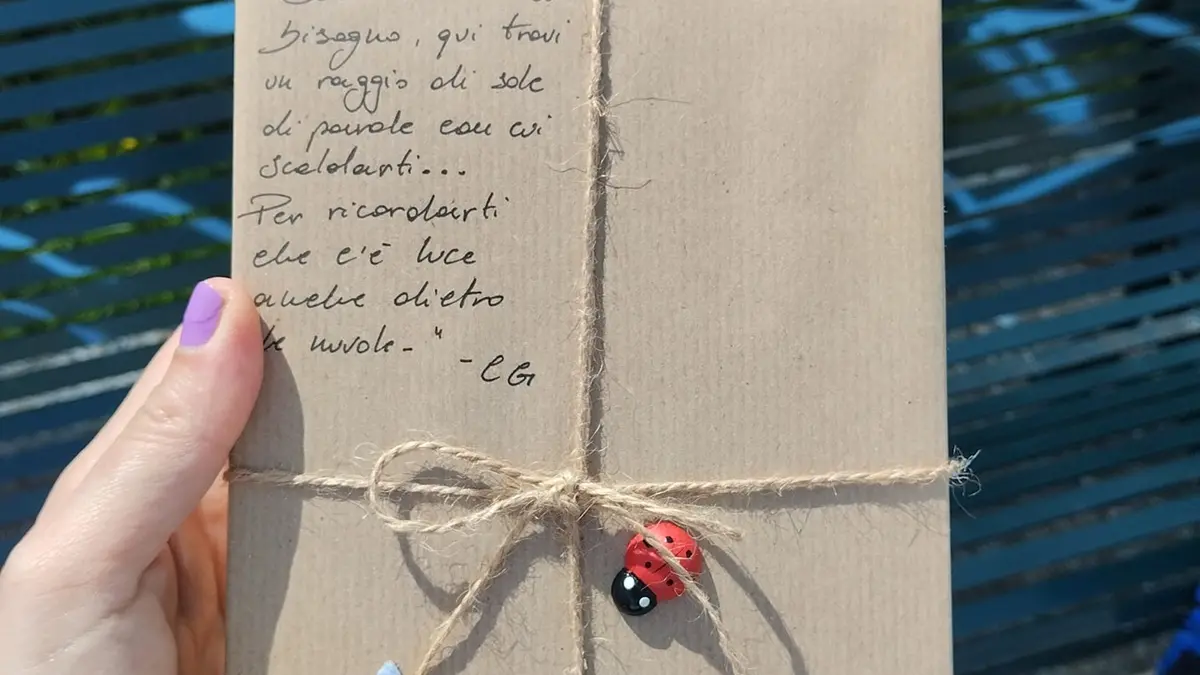 bisogno, qui trovi
un raggio di sole
di parole con cui
scaldarti...
Per ricordarti
che c'è luce
anche dietro
le nuvole-"
- CG